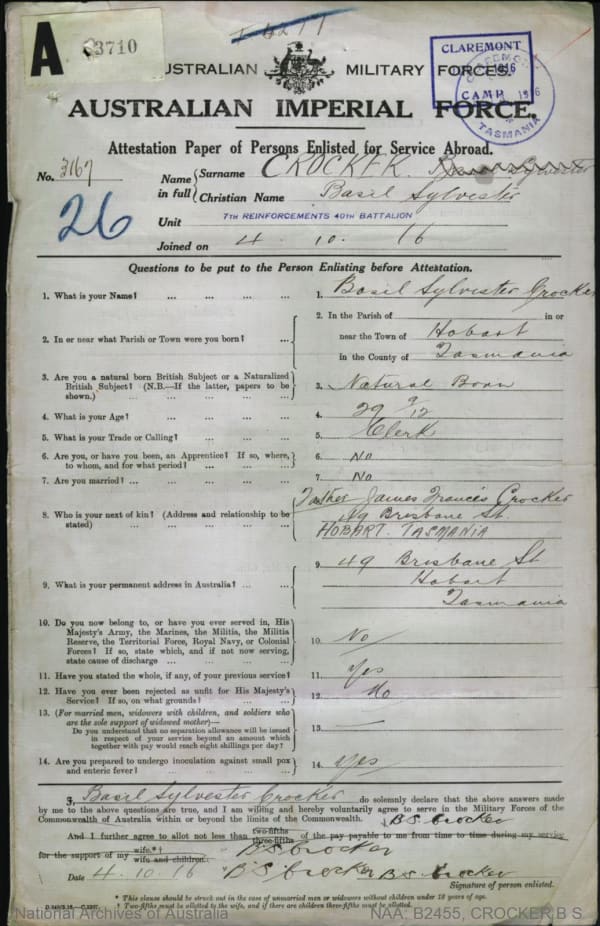 A 3710
CLAREMONT
1916
CAMP
CLAREMONT
TASMANIA
AUSTRALIAN MILITARY FORCES.
AUSTRALIAN IMPERIAL FORCE.
Attestation Paper of Persons Enlisted for Service Abroad.
No. 3167
Name in full { Surname CROCKER. Basil Sylvester
Christian Name Basil Sylvester
26
Unit 7TH REINFORCEMENTS 40TH BATTALION
Joined on 4. 10. 16
Questions to be put to the Person Enlisting before Attestation.
1. What is your Name? ... ... ... ... 1. Basil Sylvester Crocker
2. In or near what Parish or Town were you born? ... 2. In the Parish of in or
near the Town of Hobart
in the County of Tasmania
3. Are you a natural born British Subject or a Naturalized
British Subject? (N.B.—If the latter, papers to be
shown.) ... ... ... ... 3. Natural Born
4. What is your Age? ... ... ... ... 4. 29 9/12
5. What is your Trade or Calling? ... ... ... 5. Clerk
6. Are you, or have you been, an Apprentice? If so, where,
to whom, and for what period? ... ... ... 6. No
7. Are you married? ... ... ... ... 7. No
8. Who is your next of kin? (Address and relationship to be
stated) ... ... ... ... 8. Father James Francis Crocker
49 Brisbane St
HOBART. TASMANIA
9. What is your permanent address in Australia? ... ... 9. 49 Brisbane St
Hobart
Tasmania
10. Do you now belong to, or have you ever served in, His
Majesty's Army, the Marines, the Militia, the Militia
Reserve, the Territorial Force, Royal Navy, or Colonial
Forces? If so, state which, and if not now serving,
state cause of discharge ... ... ... 10. No
11. Have you stated the whole, if any, of your previous service? 11. Yes
12. Have you ever been rejected as unfit for His Majesty's
Service? If so, on what grounds? ... ... 12. No
13. (For married men, widowers with children, and soldiers who
are the sole support of widowed mother)—
Do you understand that no separation allowance will be issued
in respect of your service beyond an amount which
together with pay would reach eight shillings per day? 13. —
14. Are you prepared to undergo inoculation against small pox
and enteric fever? ... ... ... ... 14. Yes
I, Basil Sylvester Crocker do solemnly declare that the above answers made
by me to the above questions are true, and I am willing and hereby voluntarily agree to serve in the Military Forces of the
Commonwealth of Australia within or beyond the limits of the Commonwealth. B.S. Crocker
And I further agree to allot not less than two-fifths three-fifths of the pay payable to me from time to time during my service
for the support of my wife.*† wife and children. B S Crocker
Date 4. 10. 16 B S Crocker B S Crocker
Signature of person enlisted.
* This clause should be struck out in the case of unmarried men or widowers without children under 18 years of age.
† Two-fifths must be allotted to the wife, and if there are children three-fifths must be allotted.
National Archives of Australia
NAA: B2455, CROCKER B S